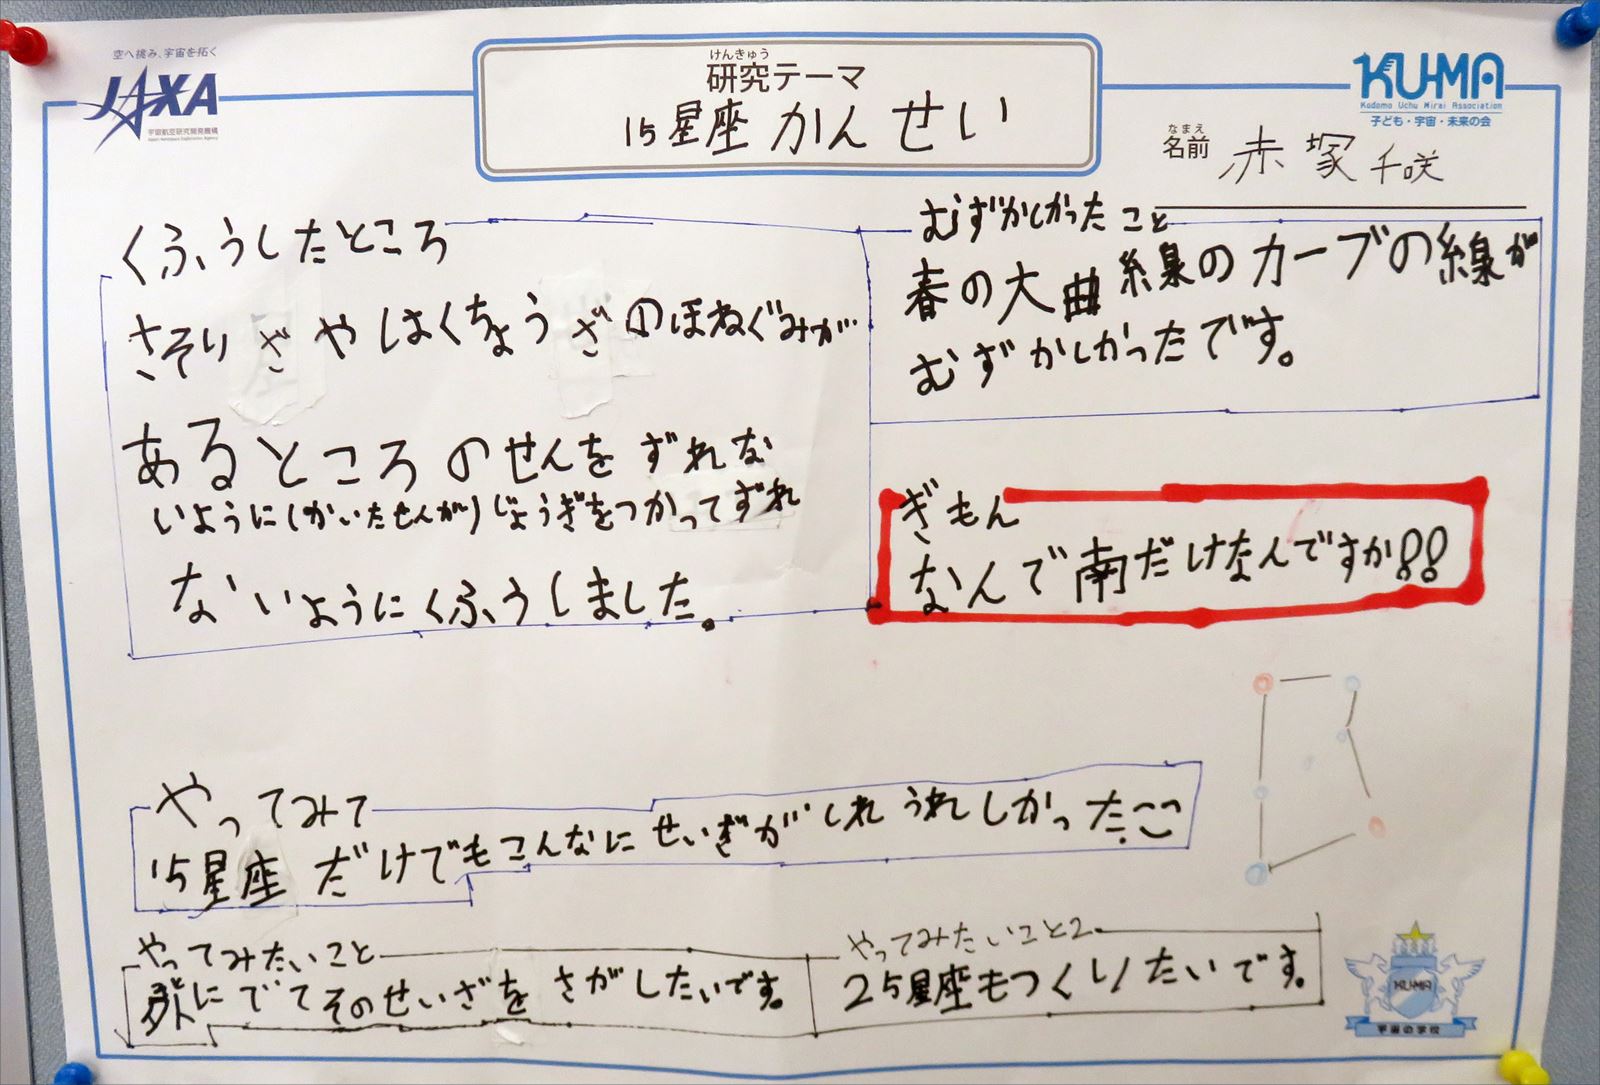 空へ挑み、宇宙を拓く
JAXA
宇宙航空研究開発機構
Japan Aerospace Exploration Agency
けんきゅう
研究テーマ
15星座 かんせい
KU-MA
Kodomo Uchu Mirai Association
子ども・宇宙・未来の会
なまえ
名前 赤塚千咲
くふうしたところ
さそりざやはくちょうざのほねぐみが
あるところのせんをずれな
いように(かいたせんが)じょうぎをつかってずれ
ないようにくふうしました。
むずかしかったこと
春の大曲線のカーブの線が
むずかしかったです。
ぎもん
なんで南だけなんですか!!
やってみて
15星座だけでもこんなにせいざがしれうれしかった
やってみたいこと
にでてそのせいざをさがしたいです。
やってみたいこと2
25星座もつくりたいです。
KU-MA
宇宙の学校